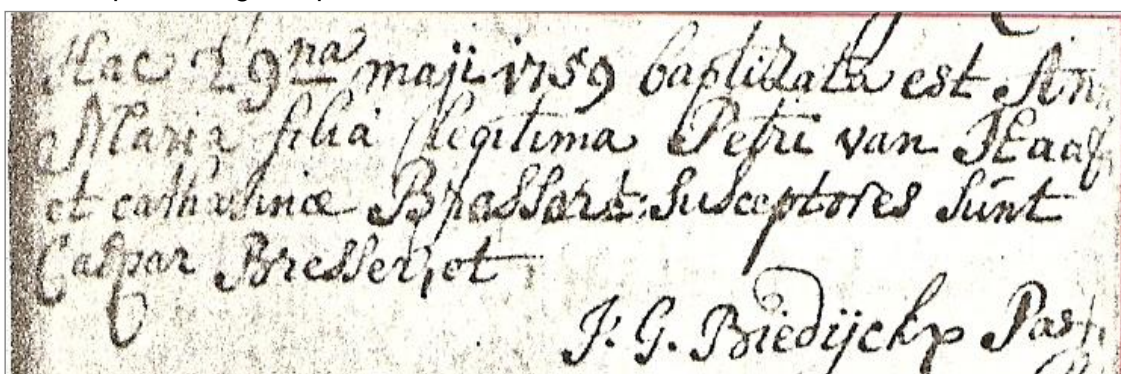 Hac 29na maji 1759 baptizata est Ann
Maria filia legitima Petri van Haaf
et catharinæ Brassart: Susceptores sunt
Caspar Bresser, et
J. G. Biedijckp Past